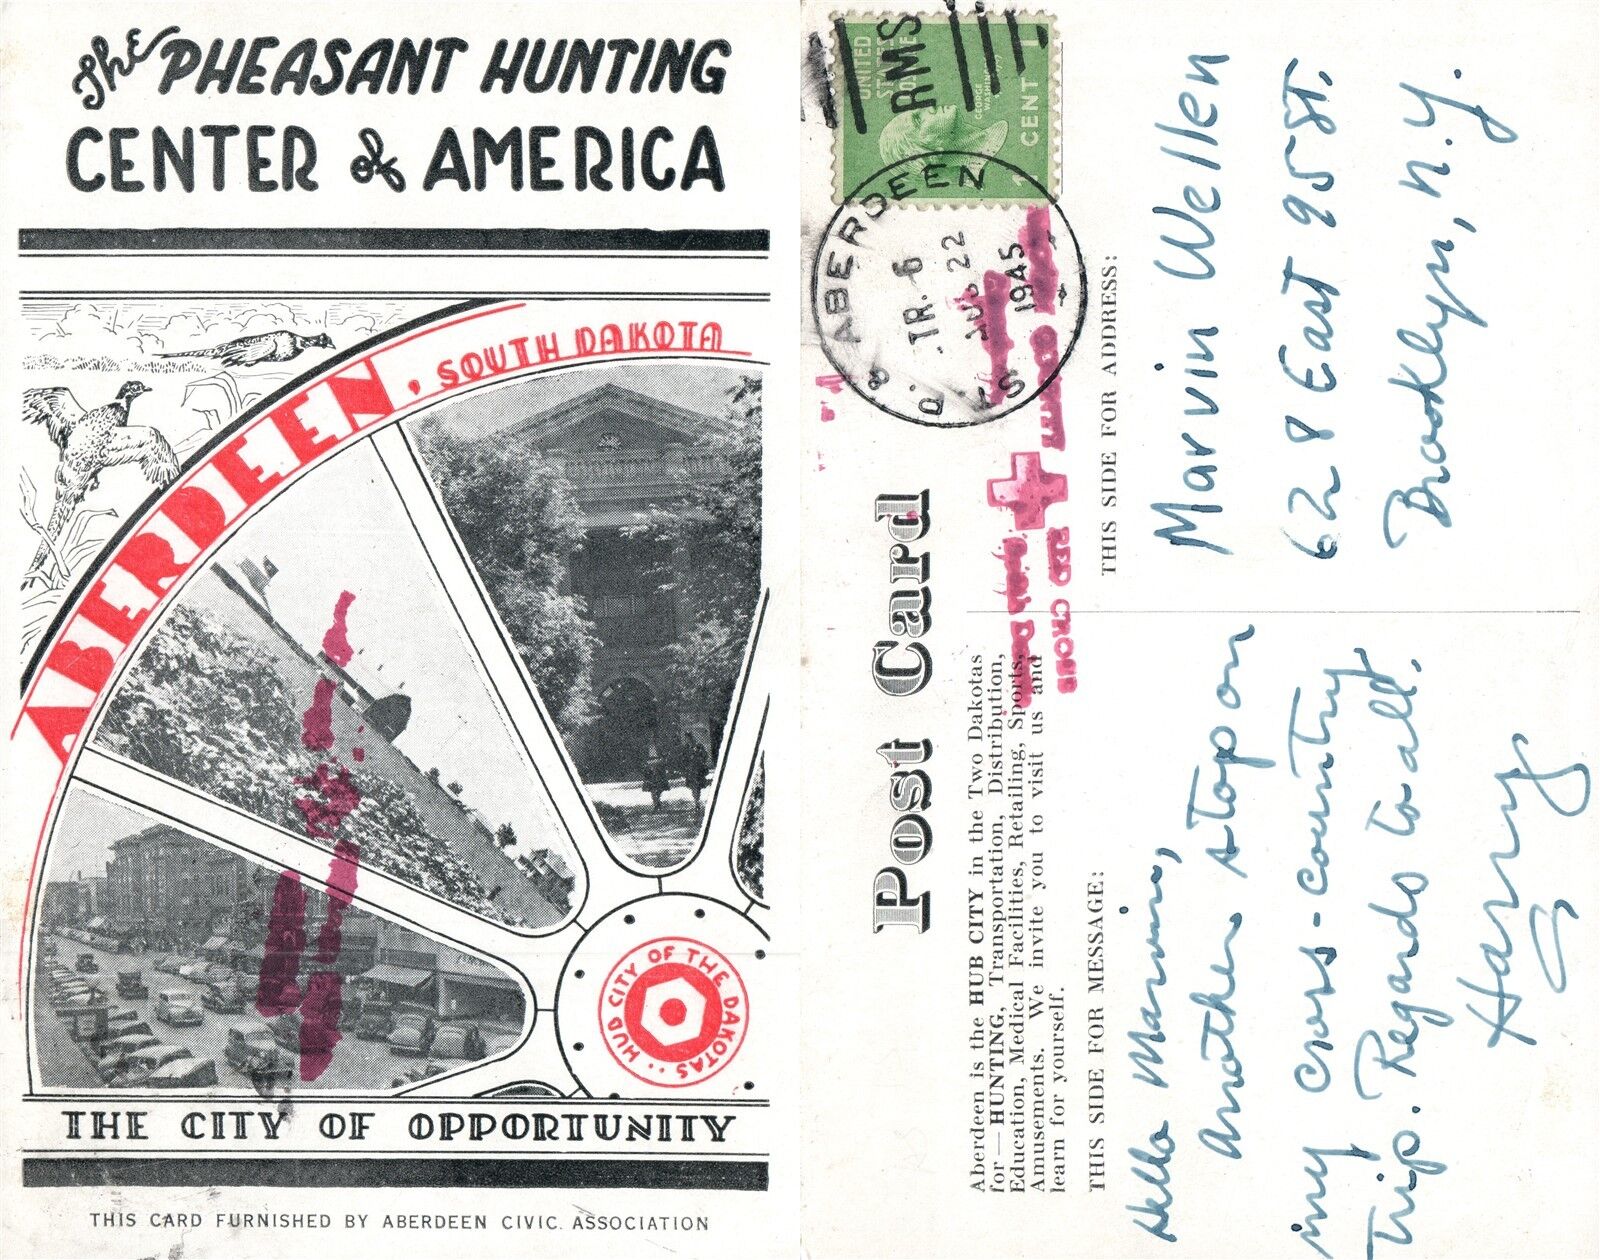 The PHEASANT HUNTING
CENTER of AMERICA
ABERDEEN, SOUTH DAKOTA
HUB CITY OF THE DAKOTAS
THE CITY OF OPPORTUNITY
THIS CARD FURNISHED BY ABERDEEN CIVIC ASSOCIATION
Post Card
Aberdeen is the HUB CITY in the Two Dakotas
for — HUNTING, Transportation, Distribution,
Education, Medical Facilities, Retailing, Sports,
Amusements. We invite you to visit us and
learn for yourself.
THIS SIDE FOR MESSAGE:
Hello Marvin,
Another stop on
my cross-country
Trip. Regards to all.
Harry
UNITED
STATES
1 CENT 1
RMS
ABERDEEN
TR. 6
AUG 22
1945
RED CROSS
THIS SIDE FOR ADDRESS:
Marvin Wellen
628 East 95 St.
Brooklyn, N.Y.